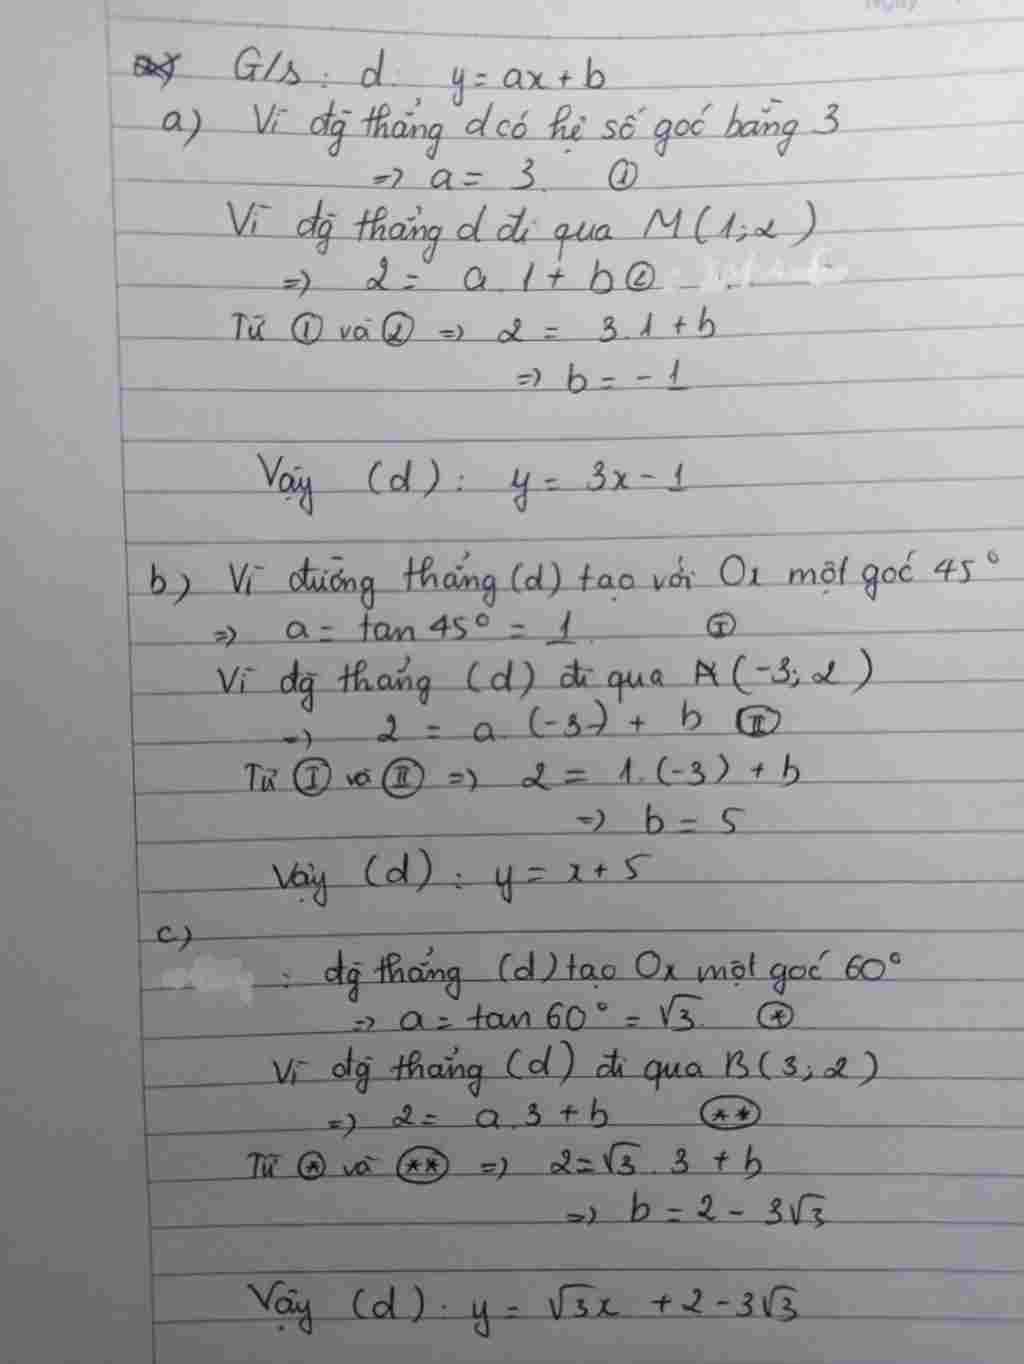 G/s : d : y = ax + b
a) Vì đg̃ thẳng d có hệ số góc bằng 3
=> a = 3. ①
Vì đg̃ thẳng d đi qua M(1;2)
=> 2 = a.1 + b ②
Từ ① và ② => 2 = 3.1 + b
=> b = -1
Vậy (d) : y = 3x - 1
b) Vì đường thẳng (d) tạo với Ox một góc 45°
=> a = tan 45° = 1. Ⓘ
Vì đg̃ thẳng (d) đi qua A(-3;2)
=> 2 = a.(-3) + b (II)
Từ Ⓘ và (II) => 2 = 1.(-3) + b
=> b = 5
Vậy (d) : y = x + 5
c)
: đg̃ thẳng (d) tạo Ox một góc 60°
=> a = tan 60° = √3. (*)
Vì đg̃ thẳng (d) đi qua B(3;2)
=> 2 = a.3 + b (**)
Từ (*) và (**) => 2 = √3.3 + b
=> b = 2 - 3√3
Vậy (d) : y = √3x + 2 - 3√3